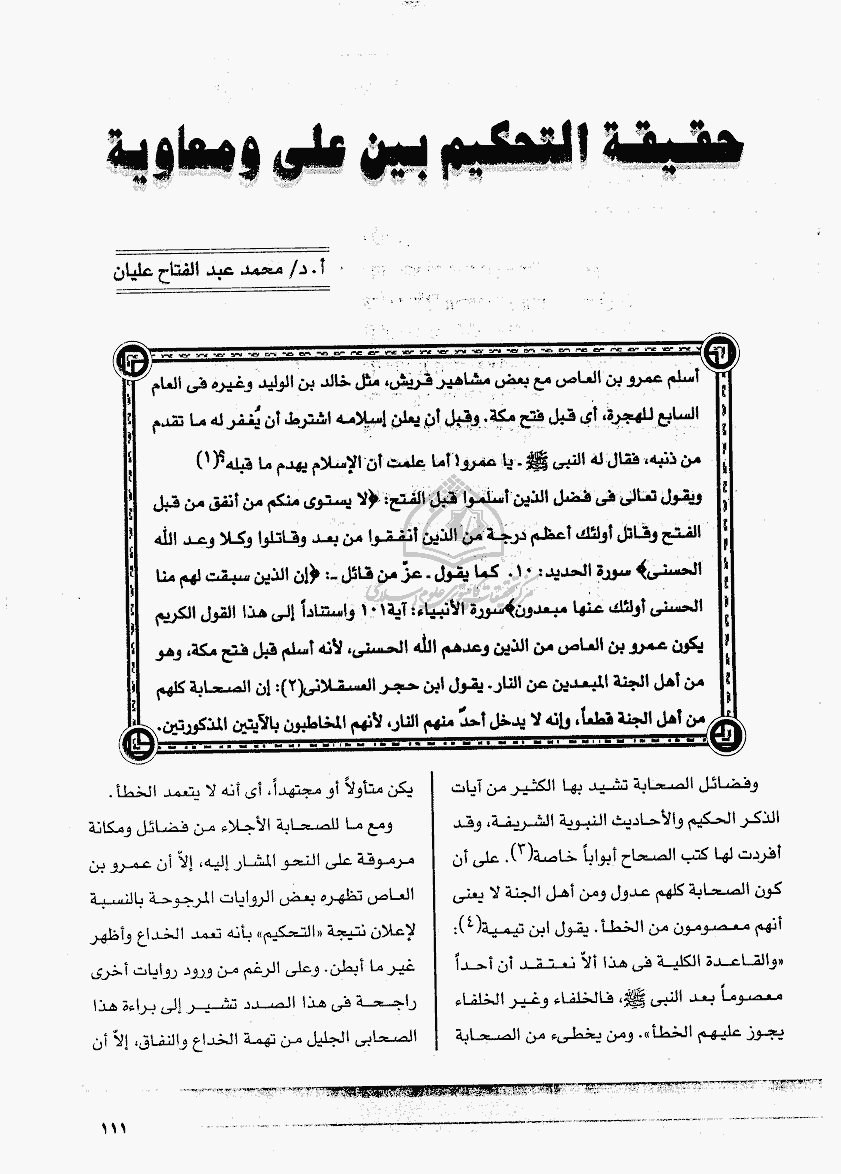 حقيقة التحكيم بين على ومعاوية
أ.د/ محمد عبد الفتاح عليان
أسلم عمرو بن العاص مع بعض مشاهير قريش، مثل خالد بن الوليد وغيره فى العام
السابع للهجرة، أى قبل فتح مكة. وقبل أن يعلن إسلامه اشترط أن يُغفر له ما تقدم
من ذنبه، فقال له النبى ﷺ ـ يا عمرو! أما علمت أن الإسلام يهدم ما قبله؟(١)
ويقول تعالى فى فضل الذين أسلموا قبل الفتح: ﴿لا يستوى منكم من أنفق من قبل
الفتح وقاتل أولئك أعظم درجة من الذين أنفقوا من بعد وقاتلوا وكلا وعد الله
الحسنى﴾ سورة الحديد: ١٠. كما يقول ـ عزّ من قائل ـ: ﴿إن الذين سبقت لهم منا
الحسنى أولئك عنها مبعدون﴾سورة الأنبياء: آية١٠١ واستناداً إلى هذا القول الكريم
يكون عمرو بن العاص من الذين وعدهم الله الحسنى، لأنه أسلم قبل فتح مكة، وهو
من أهل الجنة المبعدين عن النار. يقول ابن حجر العسقلانى(٢): إن الصحابة كلهم
من أهل الجنة قطعاً، وإنه لا يدخل أحدٌ منهم النار، لأنهم المخاطبون بالآيتين المذكورتين.
وفضائل الصحابة تشيد بها الكثير من آيات
الذكر الحكيم والأحاديث النبوية الشريفة، وقد
أفردت لها كتب الصحاح أبواباً خاصة(٣). على أن
كون الصحابة كلهم عدول ومن أهل الجنة لا يعنى
أنهم معصومون من الخطأ. يقول ابن تيمية(٤):
«والقاعدة الكلية فى هذا ألاّ نعتقد أن أحداً
معصوماً بعد النبى ﷺ، فالخلفاء وغير الخلفاء
يجوز عليهم الخطأ». ومن يخطىء من الصحابة
يكن متأولاً أو مجتهداً، أى أنه لا يتعمد الخطأ.
ومع ما للصحابة الأجلاء من فضائل ومكانة
مرموقة على النحو المشار إليه، إلاّ أن عمرو بن
العاص تظهره بعض الروايات المرجوحة بالنسبة
لإعلان نتيجة «التحكيم» بأنه تعمد الخداع وأظهر
غير ما أبطن. وعلى الرغم من ورود روايات أخرى
راجحة فى هذا الصدد تشير إلى براءة هذا
الصحابى الجليل من تهمة الخداع والنفاق، إلاّ أن
١١١